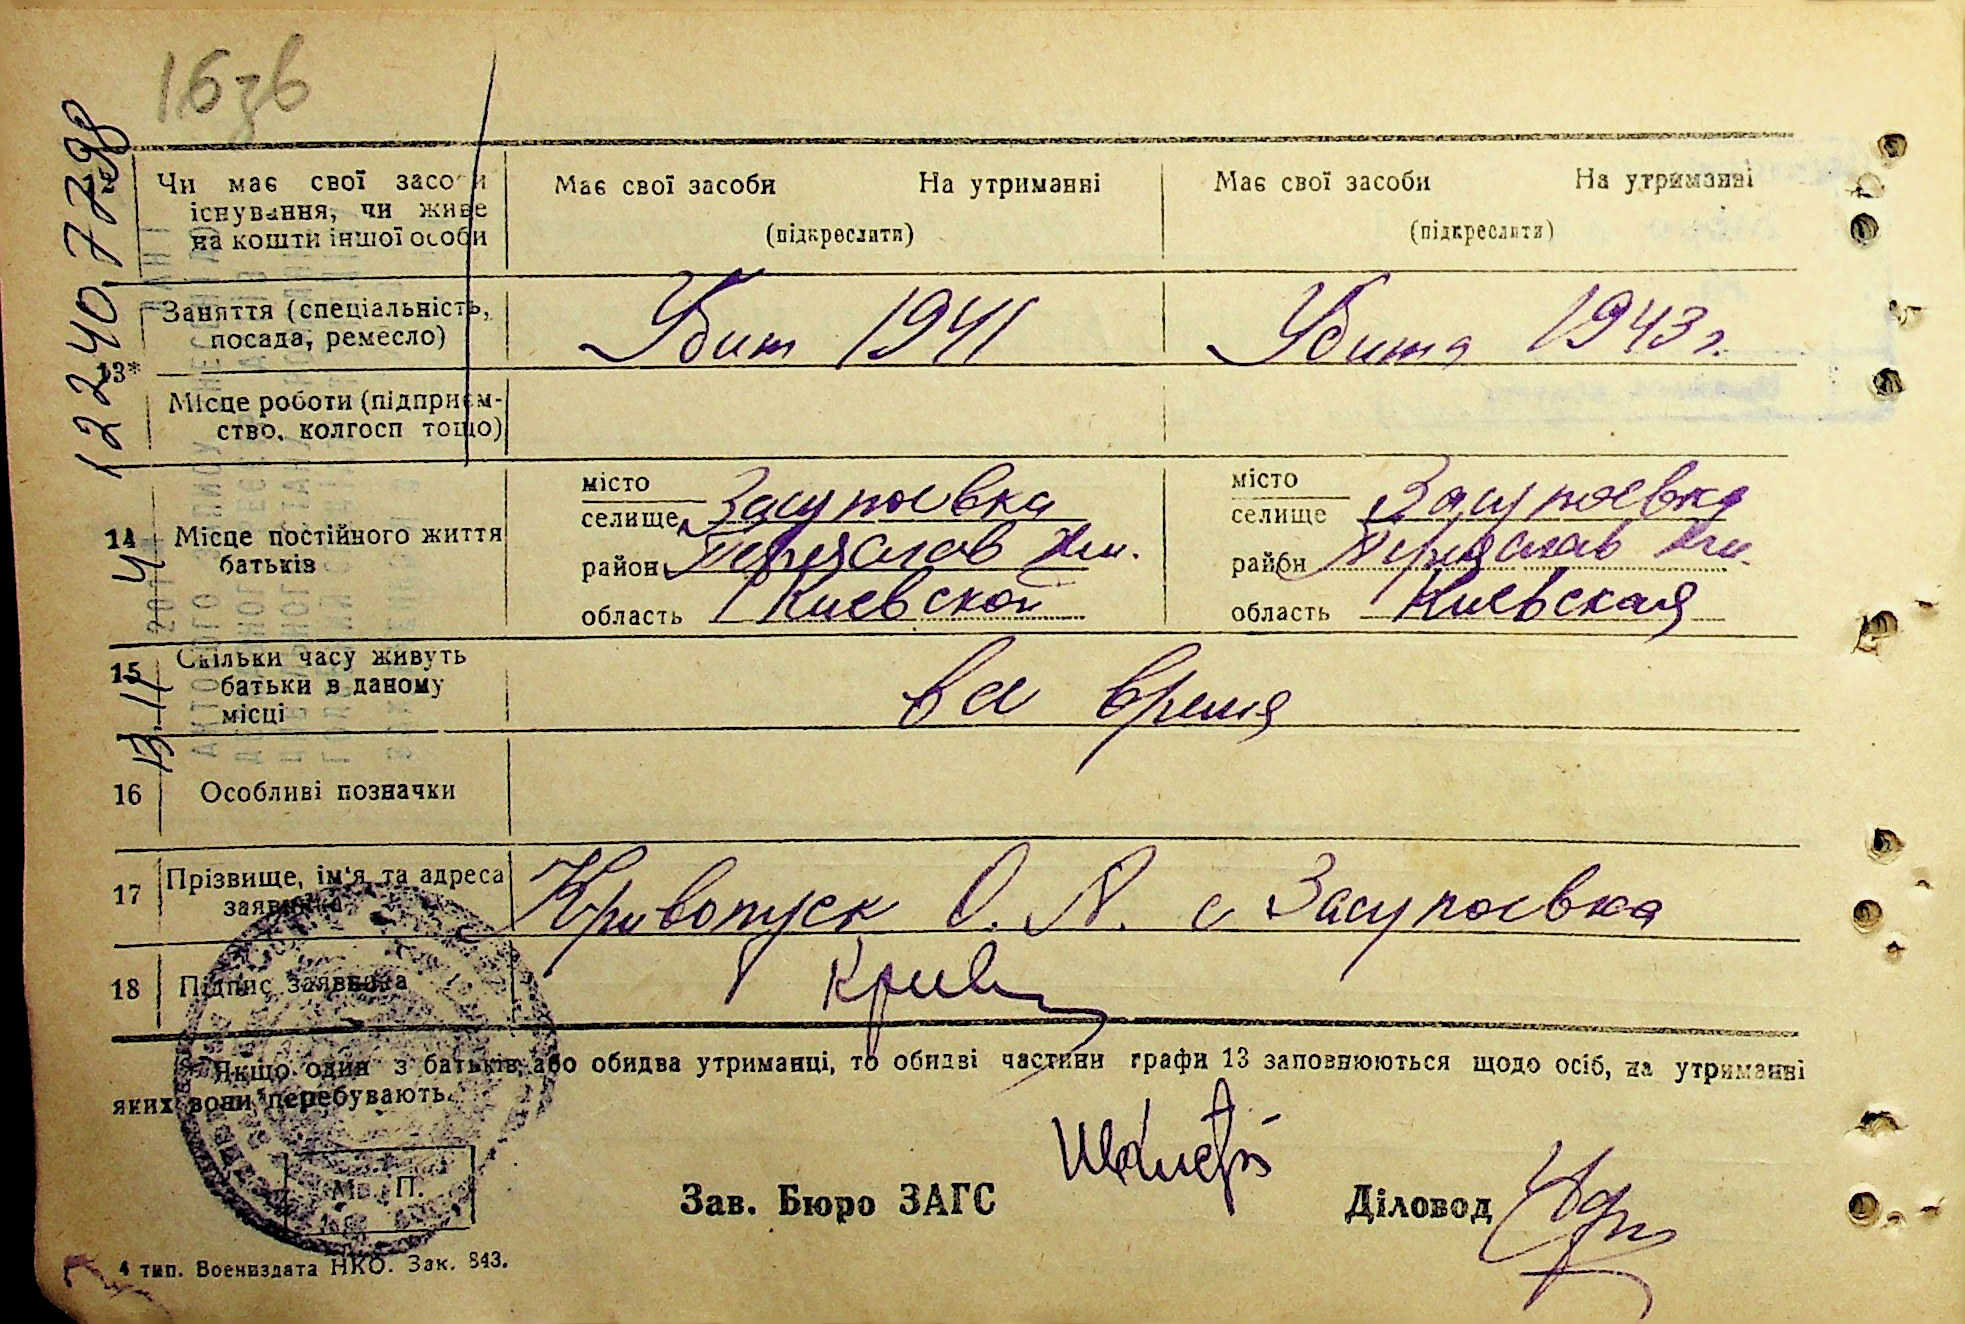 16зв
12240.77298
Чи має свої засоби
існування, чи живе
на кошти іншої особи
Має свої засоби На утриманні
(підкреслити)
Має свої засоби На утриманні
(підкреслити)
13*
Заняття (спеціальність,
посада, ремесло)
Убит 1941
Убита 1943 г.
Місце роботи (підприєм-
ство, колгосп тощо)
14
Місце постійного життя
батьків
місто
селище Засупоевка
район Переяслав Хм.
область Киевской
місто
селище Засупоевка
район Переяслав Хм.
область Киевская
15
Скільки часу живуть
батьки в даному
місці
все время
16 Особливі позначки
17
Прізвище, ім'я та адреса
заявника
Кривопуск О. М. с Засупоевка
18 Підпис заявника
Крив
* Якщо один з батьків, або обидва утриманці, то обидві частини графи 13 заповнюються щодо осіб, на утриманні
яких вони перебувають.
М. П.
Зав. Бюро ЗАГС
Діловод
4 тип. Воениздата НКО. Зак. 843.